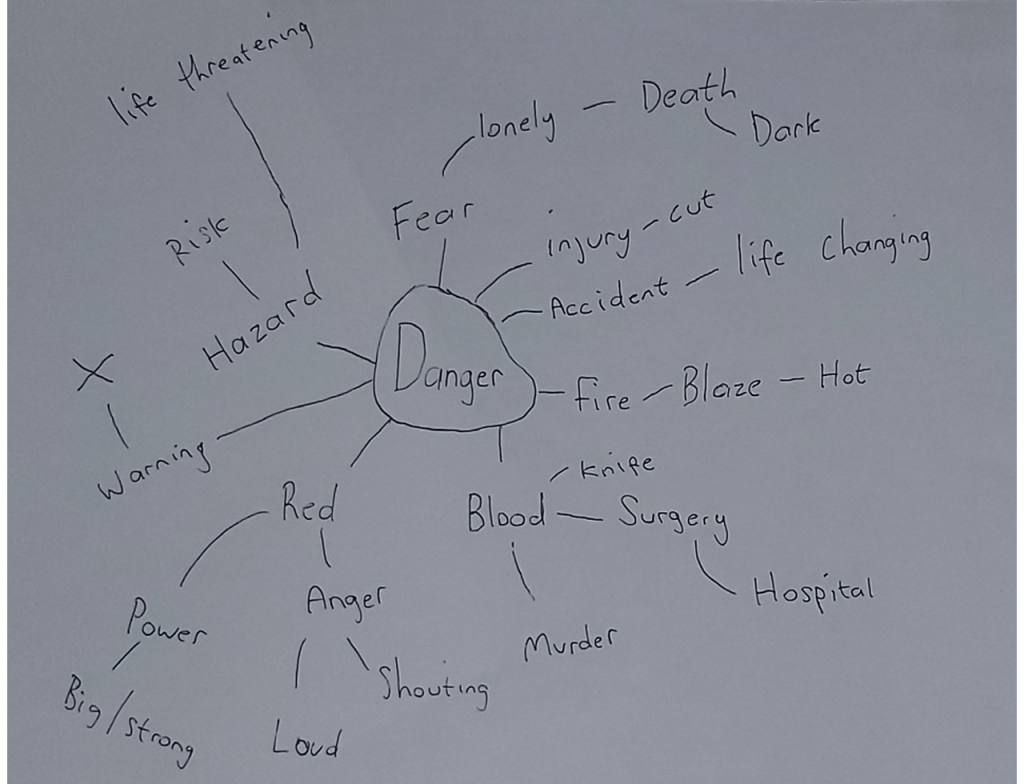 life threatening
lonely
Death
Dark
Fear
Risk
injury - cut
Accident - life Changing
Hazard
X
Danger
Fire - Blaze - Hot
Warning
Red
Knife
Blood - Surgery
Hospital
Power
Anger
Murder
Big/strong
Shouting
Loud